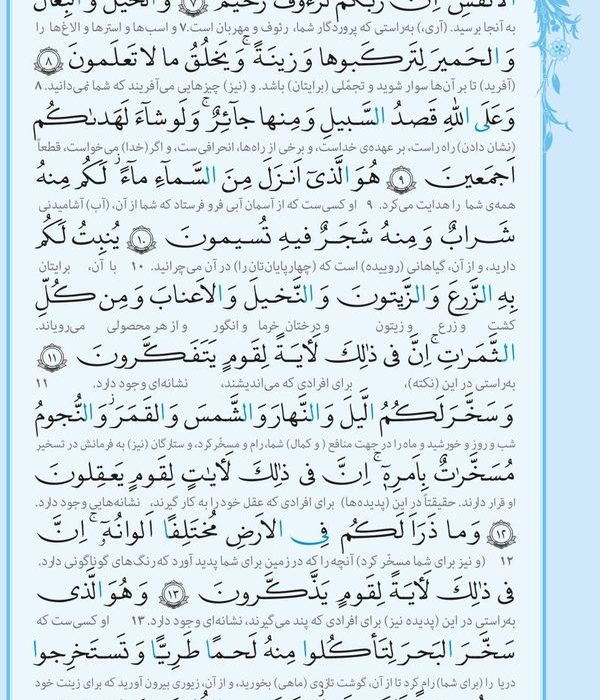 الاَنفُسِ اِنَّ رَبَّكُم لَرَءوفٌ رَحيمٌ ﴿٧﴾ وَ الخَيلَ وَ البِغالَ
به آنجا برسید. (آری،) به‌راستی که پروردگار شما، رئوف و مهربان است.۷ و اسب‌ها و استرها و الاغ‌ها را
وَ الحَميرَ لِتَركَبوها وَ زينَةً ۚ وَ يَخلُقُ ما لا تَعلَمونَ ﴿٨﴾
(آفرید) تا بر آن‌ها سوار شوید و تجمّلی (برایتان) باشد. و (نیز) چیزهایی می‌آفریند که شما نمی‌دانید. ۸
وَ عَلَى اللّٰهِ قَصدُ السَّبيلِ وَ مِنها جآئِرٌ ۚ وَ لَو شآءَ لَهَدىٰكُم
(نشان دادن) راه راست، بر عهده‌ی خداست، و برخی از راه‌ها، انحرافی‌ست، و اگر (خدا) می‌خواست، قطعاً
اَجمَعينَ ﴿٩﴾ هُوَ الَّذى اَنزَلَ مِنَ السَّمآءِ مآءً ۖ لَكُم مِنهُ
همه‌ی شما را هدایت می‌کرد. ۹ او کسی‌ست که از آسمان آبی فرو فرستاد که شما از آن، (آب) آشامیدنی
شَرابٌ وَ مِنهُ شَجَرٌ فيهِ تُسيمونَ ﴿١٠﴾ يُنبِتُ لَكُم
دارید، و از آن، گیاهانی (روییده) است که (چهارپایان‌تان را) در آن می‌چرانید. ۱۰ با آن، برایتان
بِهِ الزَّرعَ وَ الزَّيتونَ وَ النَّخيلَ وَ الاَعنابَ وَ مِن كُلِّ
کشت و زرع و زیتون و درختان خرما و انگور و از هر محصولی می‌رویاند.
الثَّمَراتِ ۗ اِنَّ فى ذٰلِكَ لَأيَةً لِقَومٍ يَتَفَكَّرونَ ﴿١١﴾
به‌راستی در این (نکته)، برای افرادی که می‌اندیشند، نشانه‌ای وجود دارد. ۱۱
وَ سَخَّرَ لَكُمُ الَّيلَ وَ النَّهارَ وَ الشَّمسَ وَ القَمَرَ ۖ وَ النُّجومُ
شب و روز و خورشید و ماه را در جهت منافع (و کمال) شما، رام و مسخّر کرد، و ستارگان (نیز) به فرمانش در تسخیر
مُسَخَّراتٌ بِاَمرِهِ ۚ اِنَّ فى ذٰلِكَ لَأيٰتٍ لِقَومٍ يَعقِلونَ
او قرار دارند. حقیقتاً در این (پدیده‌ها) برای افرادی که عقل خود را به کار گیرند، نشانه‌هایی وجود دارد.
﴿١٢﴾ وَ ما ذَرَاَ لَكُم فِى الاَرضِ مُختَلِفًا اَلوانُهُ ۚ اِنَّ
۱۲ (و نیز برای شما مسخّر کرد) آنچه را که در زمین برای شما پدید آورد که رنگ‌های گوناگونی دارد.
فى ذٰلِكَ لَأيَةً لِقَومٍ يَذَّكَّرونَ ﴿١٣﴾ وَ هُوَ الَّذى
به‌راستی در این (پدیده نیز) برای افرادی که پند می‌گیرند، نشانه‌ای وجود دارد. ۱۳ او کسی‌ست که
سَخَّرَ البَحرَ لِتَأكُلوا مِنهُ لَحمًا طَرِيًّا وَ تَستَخرِجوا
دریا را (برای شما) رام کرد تا از آن، گوشت تازه‌ی (ماهی) بخورید، و از آن، زیوری بیرون آورید که برای زینت خود